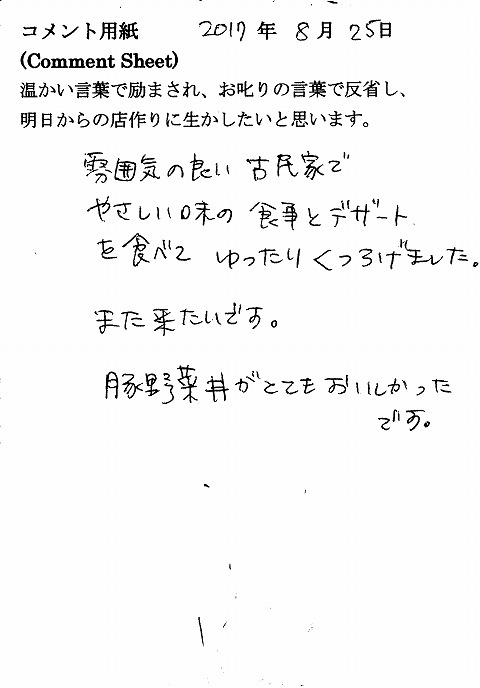 コメント用紙 2017 年 8 月 25日
(Comment Sheet)
温かい言葉で励まされ、お叱りの言葉で反省し、
明日からの店作りに生かしたいと思います。
雰囲気の良い 古民家で
やさしい味の 食事とデザート
を食べて ゆったりくつろげました。
また来たいです。
豚野菜丼がとてもおいしかった
です。